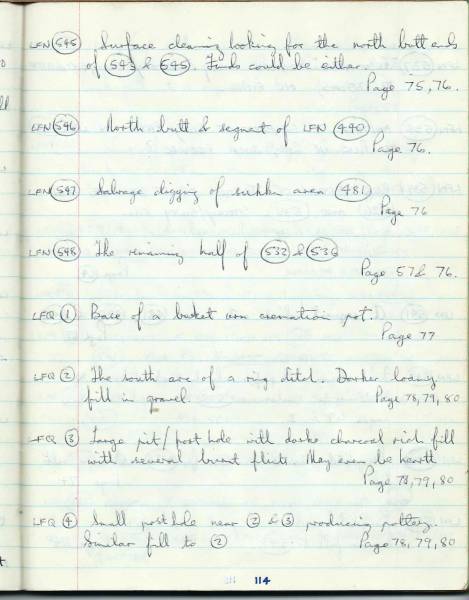 LFN (545) Surface cleaning looking for the north butt ends
of (543) & (545). Finds could be either.
Page 75, 76.
LFN (546) North butt & segment of LFN (440)
Page 76.
LFN (547) Salvage digging of sunken area (481)
Page 76
LFN (548) The remaining half of (532) & (536)
Page 57 & 76.
LFQ (1) Base of a bucket urn cremation pot.
Page 77
LFQ (2) The south arc of a ring ditch. Darker loamy
fill in gravel Page 78, 79, 80
LFQ (3) Large pit/post hole with darke charcoal rich fill
with several burnt flints. May even be hearth
Page 78, 79, 80
LFQ (4) Small posthole near (2) & (3) producing pottery.
Similar fill to (2) Page 78, 79, 80
114